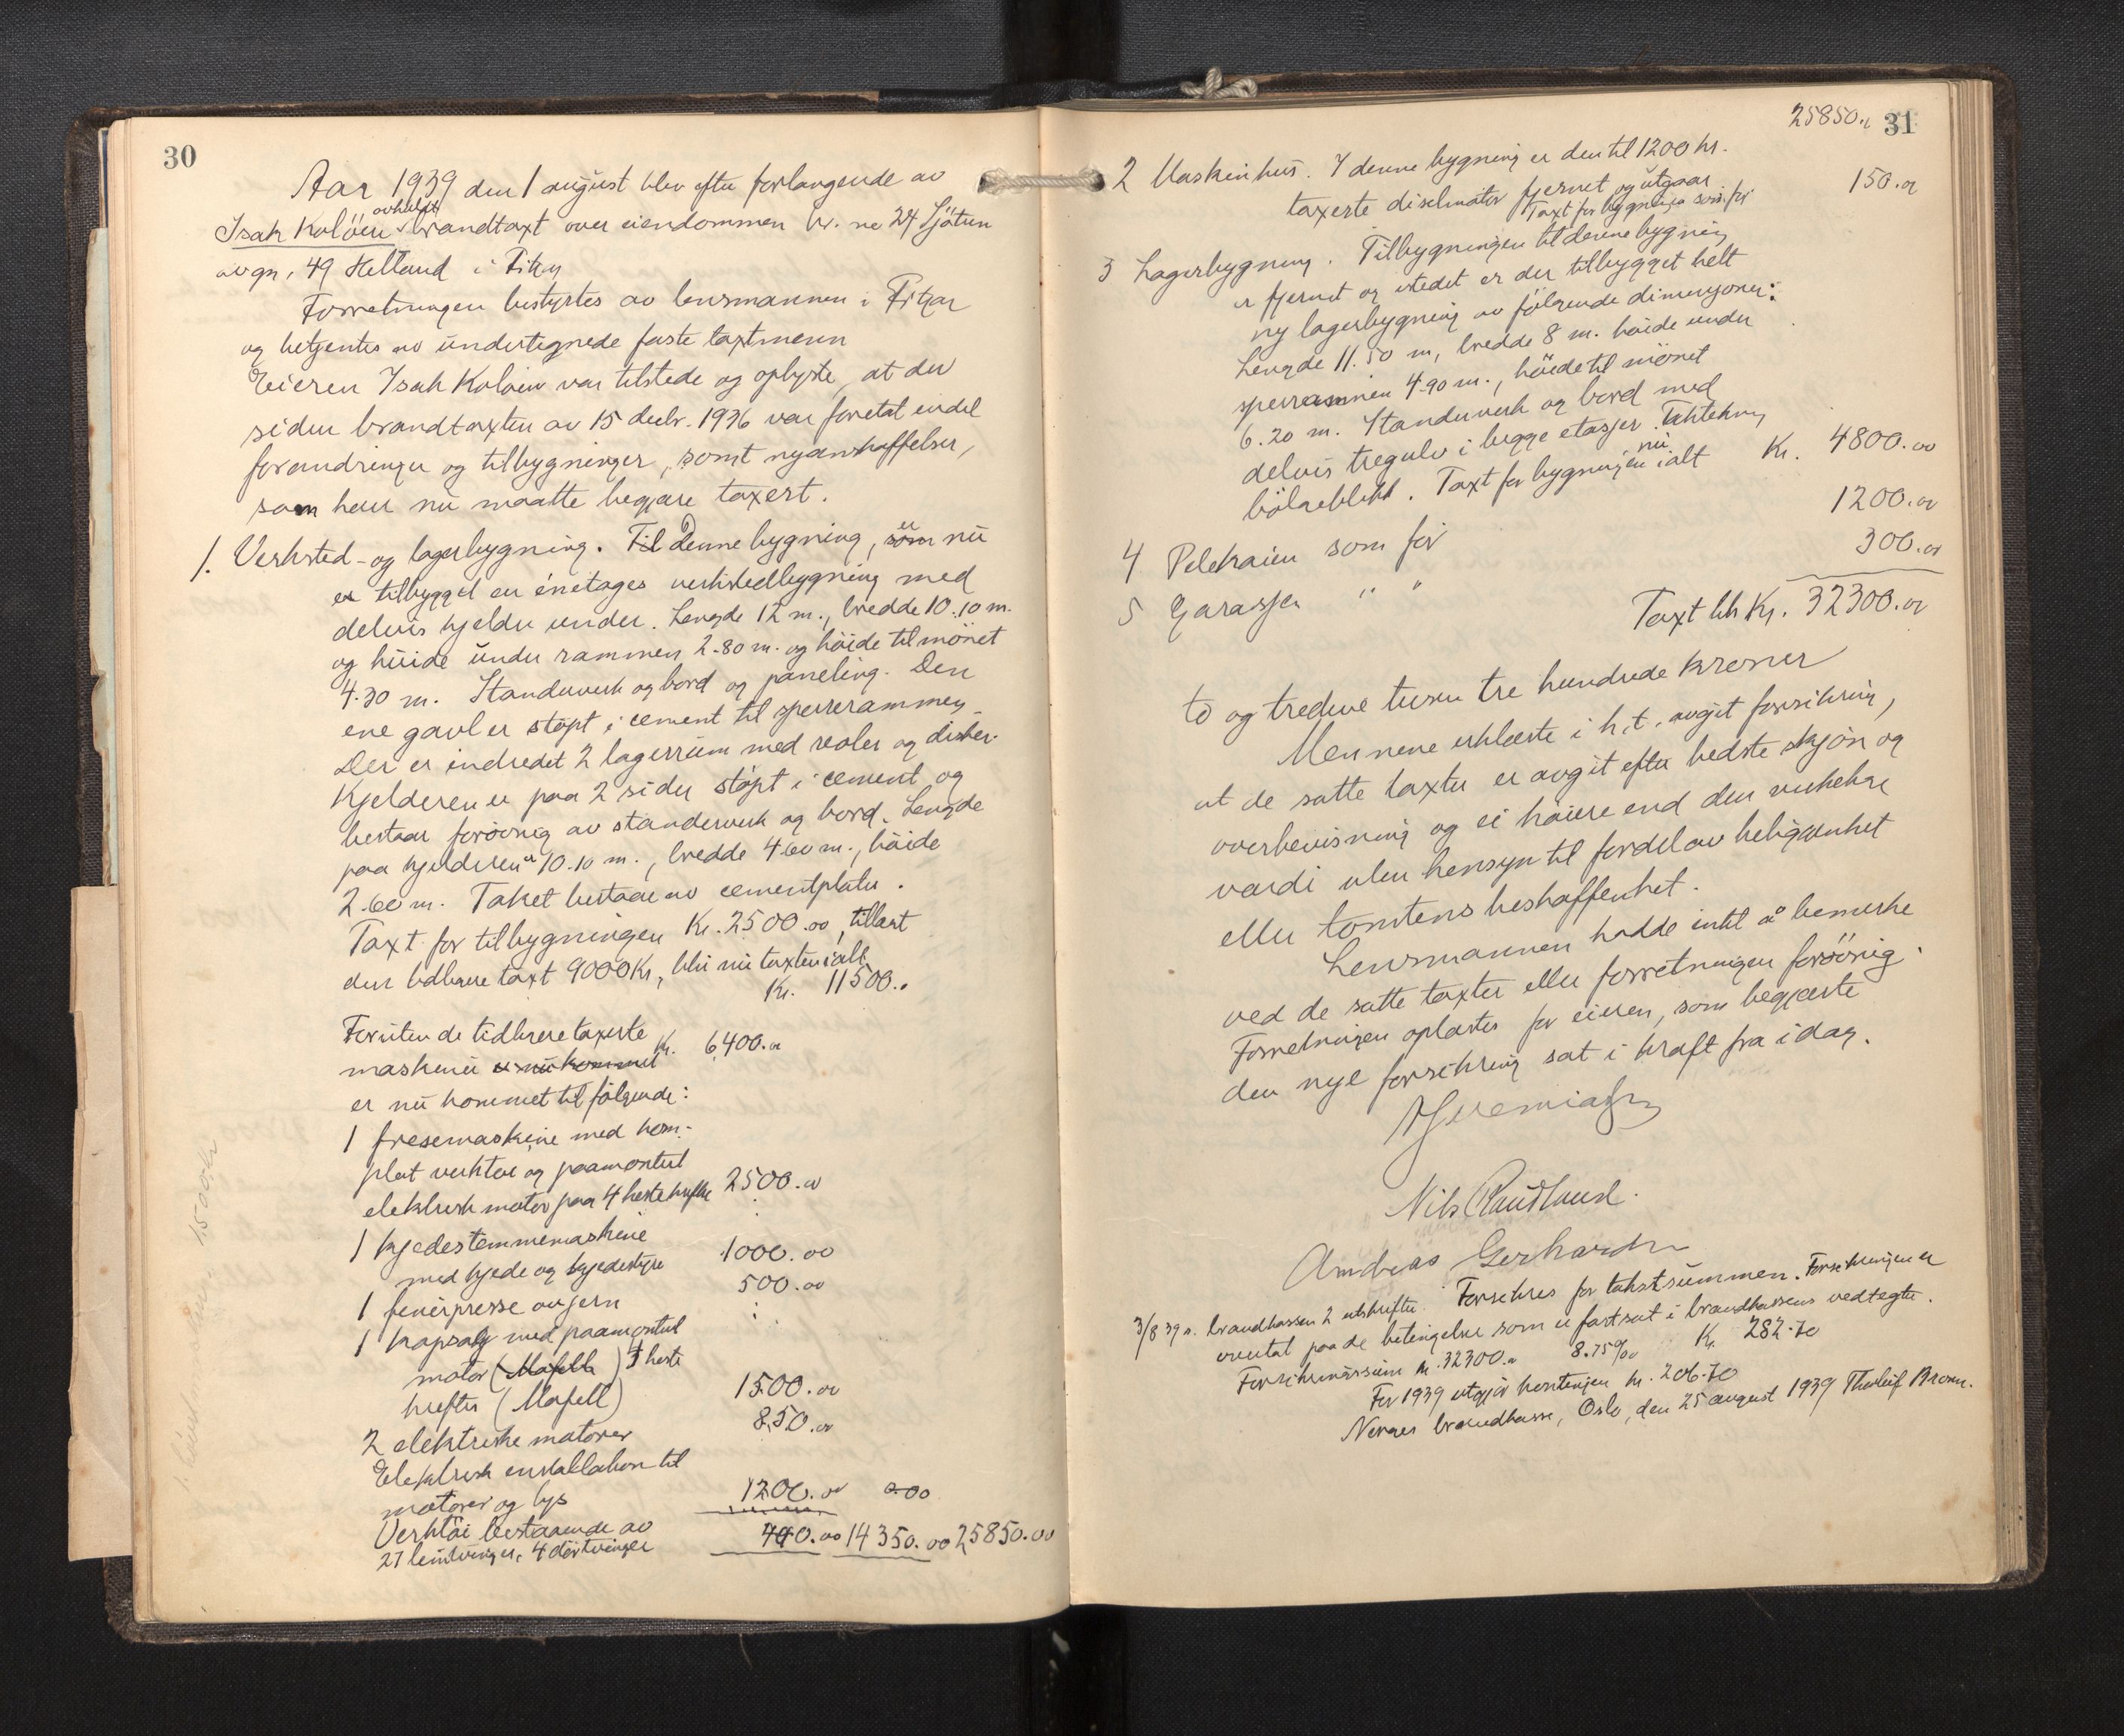 30
Aar 1939 den 1 august blev efter forlangende av
avholdt
Isak Koløen brandtaxt over eiendommen br. no 24 Sjötun
av gn. 49 Helland i Fitjar
Forretningen bestyrtes av lensmannen i Fitjar
og betjentes av undertegnede faste taxtmenn
Eieren Isak Koløen var tilstede og oplyste, at der
siden brandtaxten av 15 decbr. 1936 var foretat endel
forandringer og tilbygninger, samt nyanskaffelser,
som han nu maatte begjære taxert.
1. Verksted- og lagerbygning. Til Denne bygning, som er nu
er tilbygget en énetages verkstedbygning med
delvis kjelder under. Lengde 12 m., bredde 10.10 m.
og høide under rammen 2.80 m. og høide til mønet
4.30 m. Standerverk og bord og paneling. Den
ene gavl er støpt i cement til sperrerammen.
Der er indredet 2 lagerrum med reoler og disker.
Kjelderen er paa 2 sider støpt i cement og
bestaar forøvrig av standerverk og bord. Lengde
paa kjelderen er 10.10 m., bredde 4.60 m., høide
2.60 m. Taket bestaar av cementplater.
Taxt for tilbygningen Kr. 2500.00, tillagt
den tidligere taxt 9000 Kr, blir nu taxten ialt
Kr. 11500.
Foruten de tidligere taxerte
maskiner er nu kommet Kr. 6,400.00
er nu kommet til følgende:
1 fresemaskine med kom-
plet verktøi og paamontert
elektrisk motor paa 4 hestekrefter 2500.00
1 kjedestemmemaskine
med kjede og kjedestyre 1000.00
1 finérpresse av jern 500.00
1 kapsag med paamontert
motor (Mafell) 4 heste
krefter (Mafell) 1500.00
2 elektriske motorer 850.00
Elektrisk installation til
motorer og lys 1200.00
Verktøi bestaaende av
27 limtvinger, 4 dørtvinger 400.00 14350.00 25850.00
25850.00 31
2 Maskinhus. I denne bygning er den til 1200 kr.
taxerte diselmotor fjernet og utgaar
Taxt for bygningen som før 150.00
3 Lagerbygning. Tilbygningen til denne bygning
er fjernet og istedet er der tilbygget helt
ny lagerbygning av følgende dimensjoner:
Lengde 11.50 m, bredde 8 m. høide under
sperrammen 4.90 m., høide til mønet
6.20 m. Standerverk og bord med
delvis tregulv i begge etasjer. Taktekning
bølgeblikk. Taxt for bygningen nu ialt Kr. 4800.00
4 Pelekaien som før 1200.00
5 Garasjen " " 300.00
Taxt blir Kr. 32300.00
to og tredeve tusen tre hundrede kroner
Mennene erklærte i h.t. avgit forsikring,
at de satte taxter er avgit efter bedste skjøn og
overbevisning og ei høiere end den virkelige
værdi uten hensyn til fordel av beliggenhet
eller tomtens beskaffenhet.
Lensmannen hadde intet å bemerke
ved de satte taxter eller forretningen forøvrig.
Forretningen oplæstes for eieren, som begjærte
den nye forsikring sat i kraft fra idag.
Nils Rimsland.
Andreas Gerhardsen
3/8 39 s. brandkassen 2 utskrifter. Forsikres for takstsummen. Forsikringen er
overtat paa de betingelser som er fastsat i brandkassens vedtegter.
Forsikringssum kr. 32300.00 8.75 ‰ Kr. 282.70
For 1939 utgjør kontingen kr. 206.70
Norges brandkasse, Oslo, den 25 august 1939 Thorleif